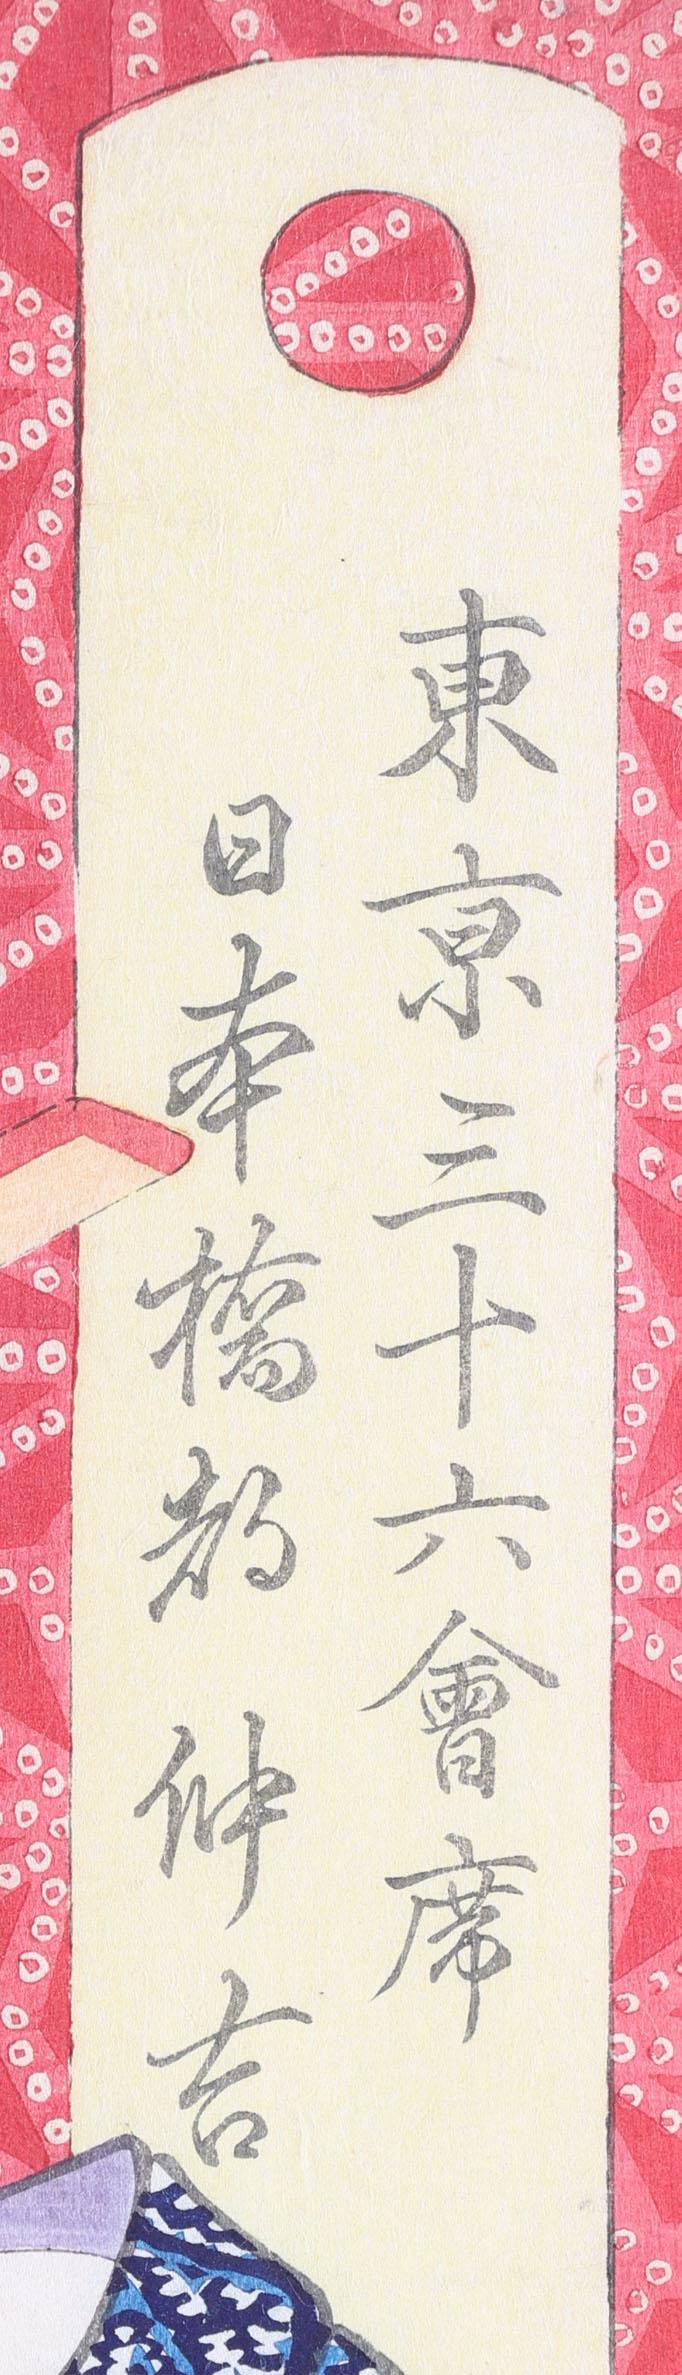 東京三十六會席
日本橋都 仲吉